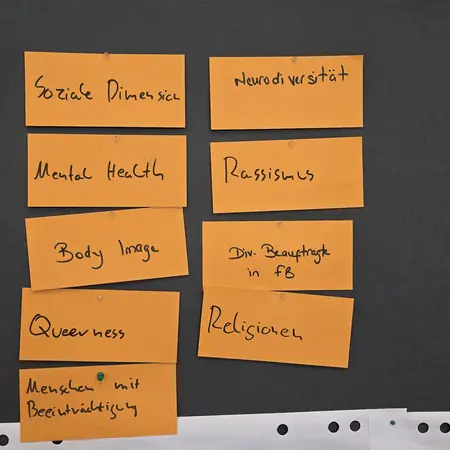 Soziale Dimension
Mental Health
Body Image
Queerness
Menschen mit
Beeinträchtigung
Neurodiversität
Rassismus
Div. Beauftragte
in FB
Religionen